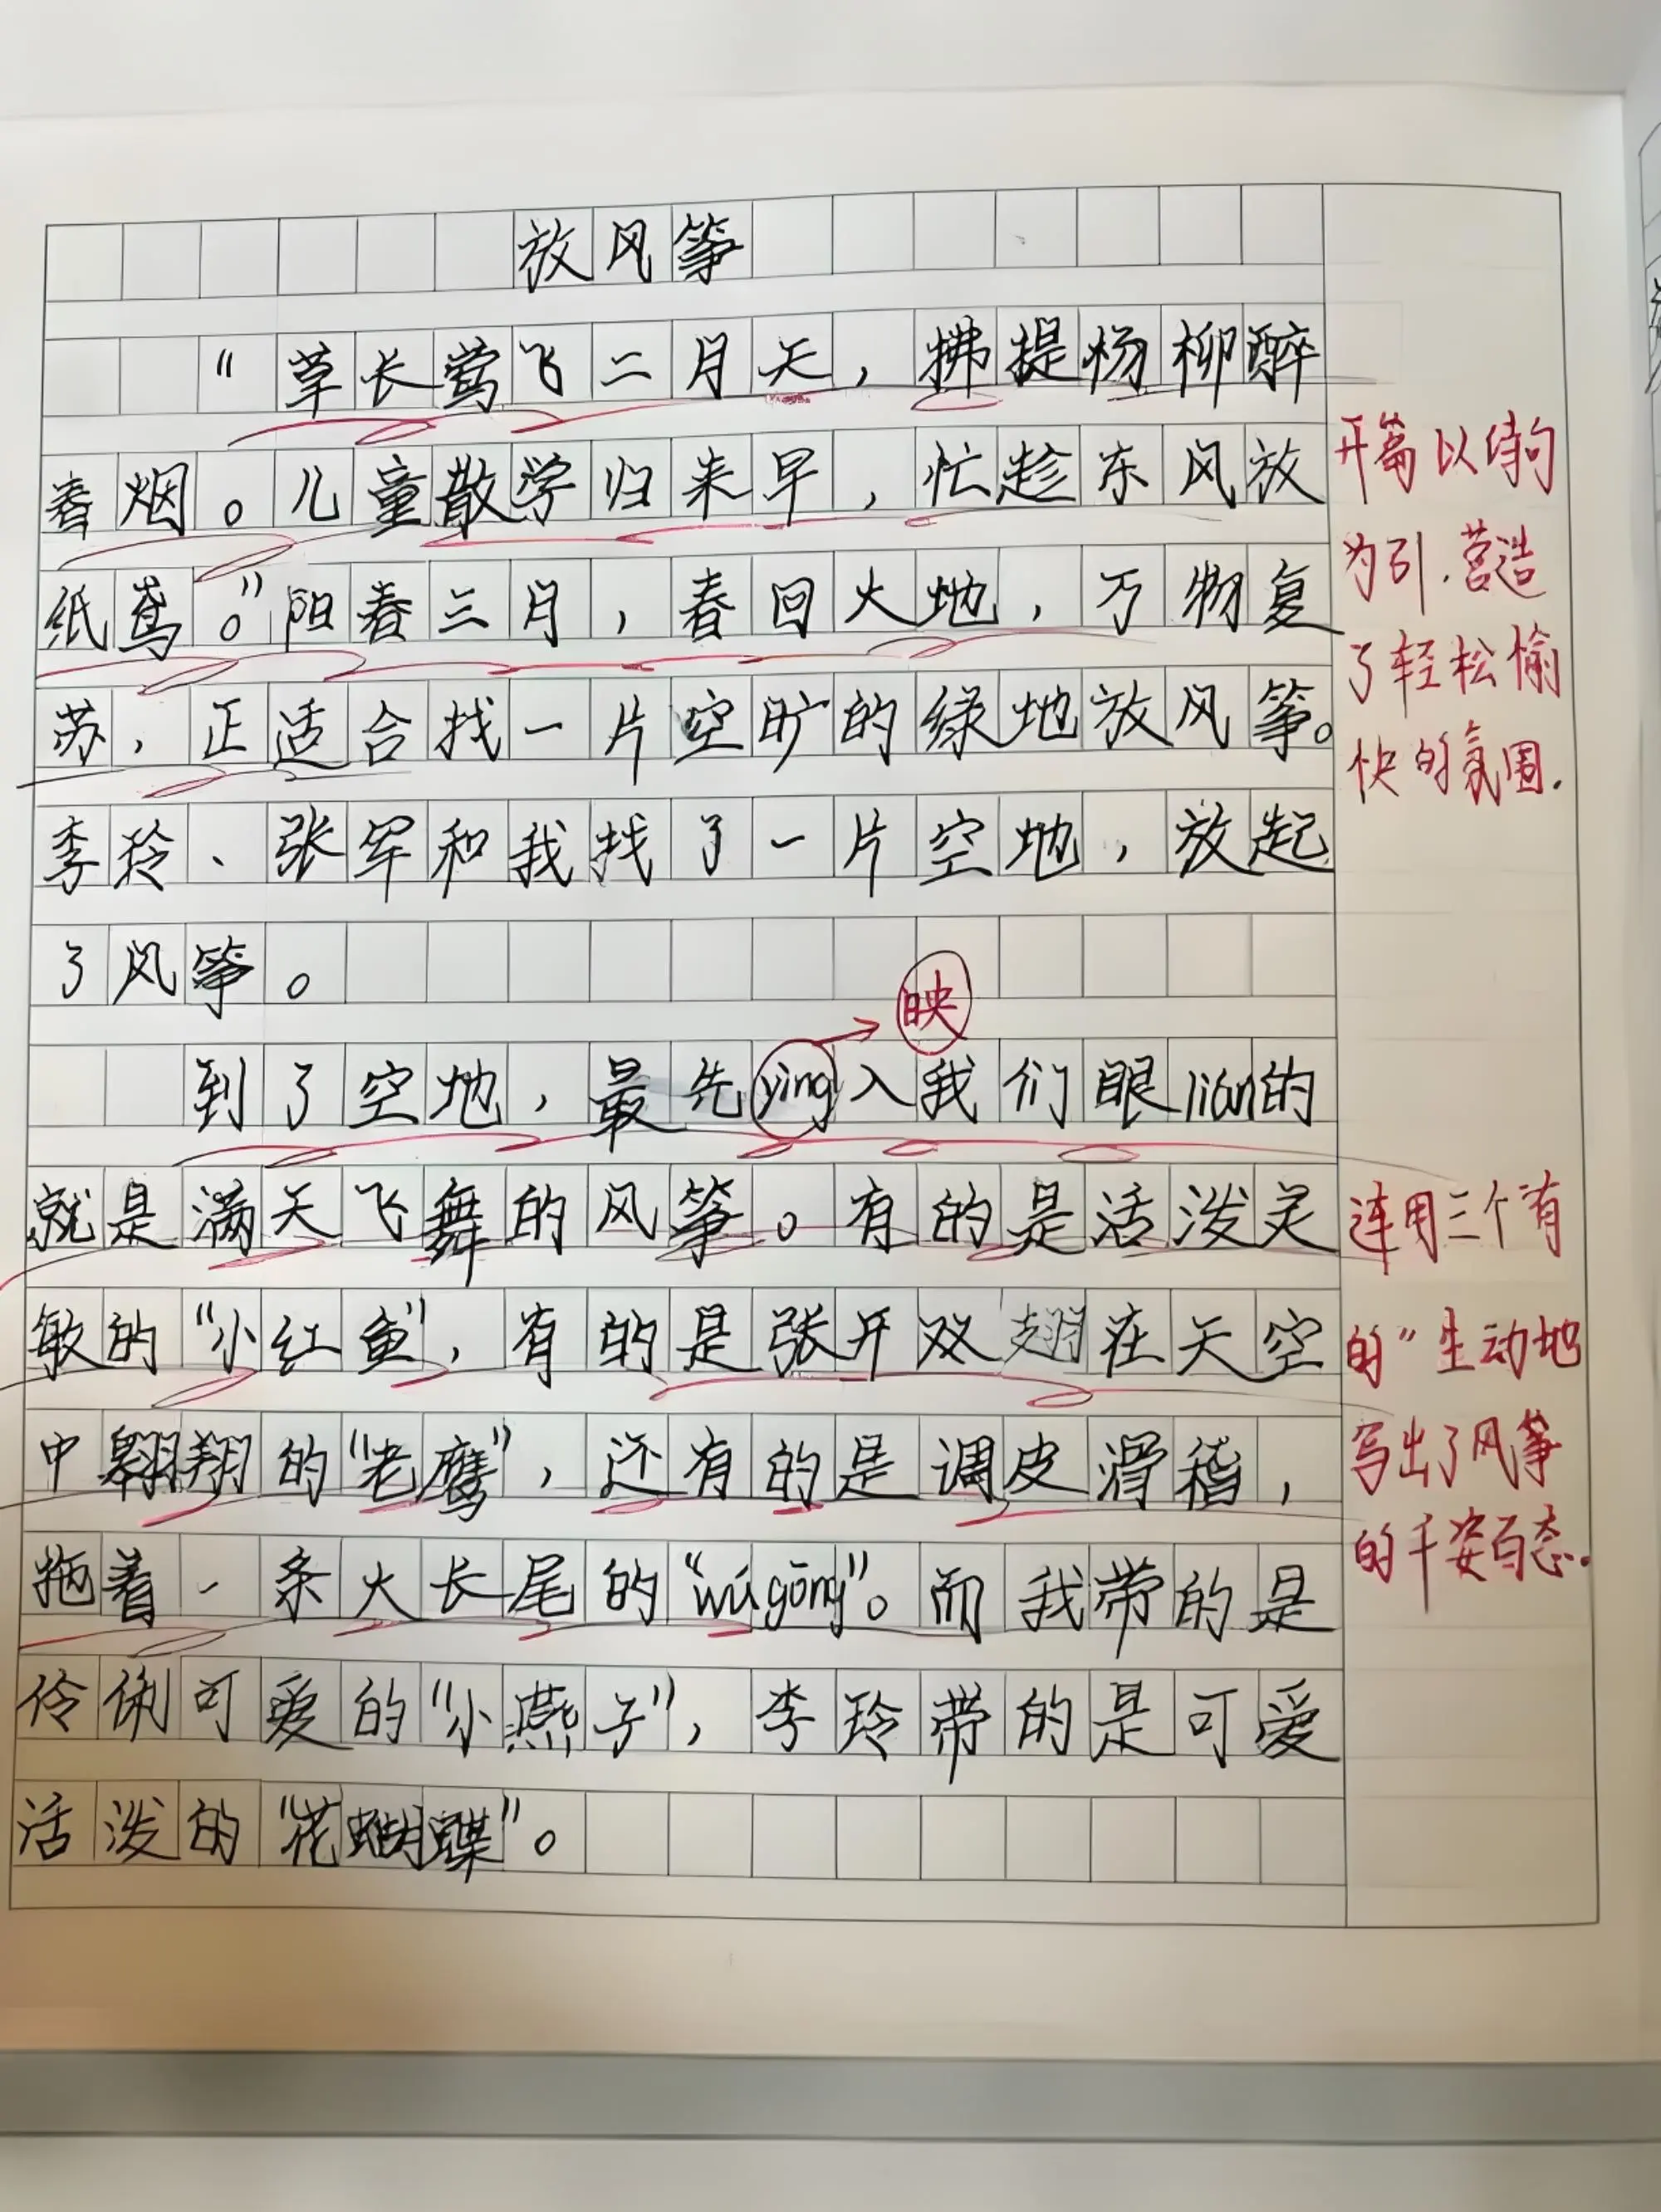 放风筝
“草长莺飞二月天，拂提杨柳醉
春烟。儿童散学归来早，忙趁东风放
纸鸢。”阳春三月，春回大地，万物复
苏，正适合找一片空旷的绿地放风筝。
李玲、张军和我找了一片空地，放起
了风筝。
映
到了空地，最先yìng入我们眼lián的
就是满天飞舞的风筝。有的是活泼灵
敏的“小红鱼”，有的是张开双翅在天空
中翱翔的“老鹰”，还有的是调皮滑稽，
拖着一条大长尾的“wúgōng”。而我带的是
伶俐可爱的“小燕子”，李玲带的是可爱
活泼的“花蝴蝶”。
开篇以诗句
为引，营造
了轻松愉
快的氛围.
连用三个有
的”生动地
写出了风筝
的千姿百态.